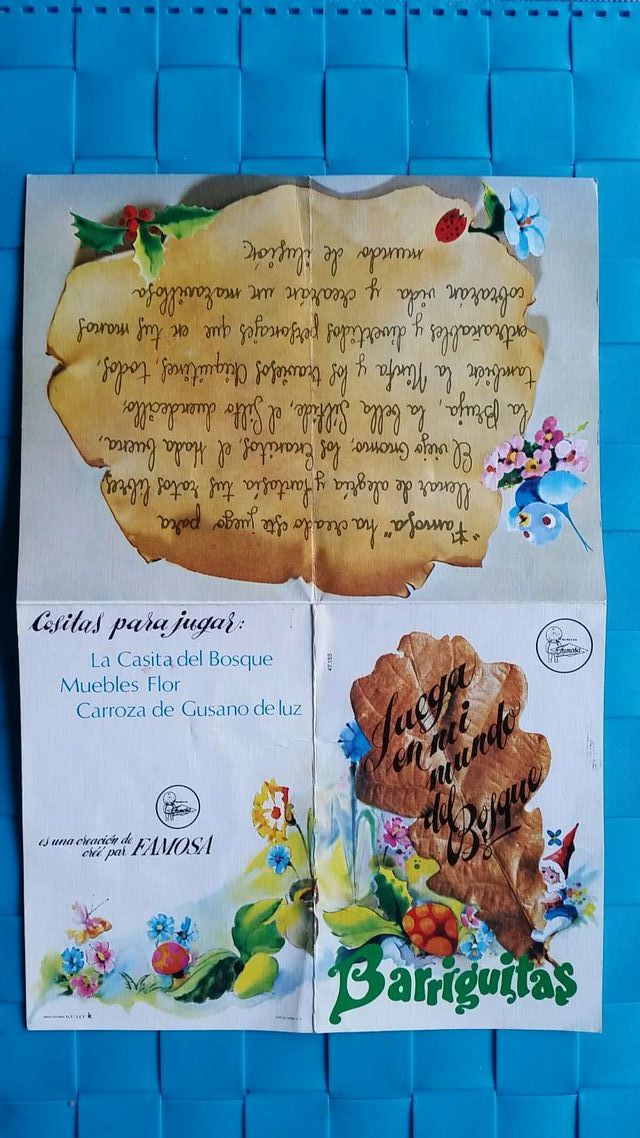 "Famosa" ha creado este juego para
llenar de alegría y fantasía tus ratos libres
El viejo Gnomo, los Enanitos, el Hada buena,
la Bruja, la bella Silfide, el Silfo duendecillo,
también la Ninfa y los traviesos Chiquitines, todos,
entrañables y divertidos personajes que en tus manos
cobrarán vida y crearán un maravilloso
mundo de ilusión.
Cositas para jugar:
La Casita del Bosque
Muebles Flor
Carroza de Gusano de luz
Famosa
es una creación de
créé par FAMOSA
47.183
Famosa
Juega
en mi
mundo
del Bosque
Barriguitas